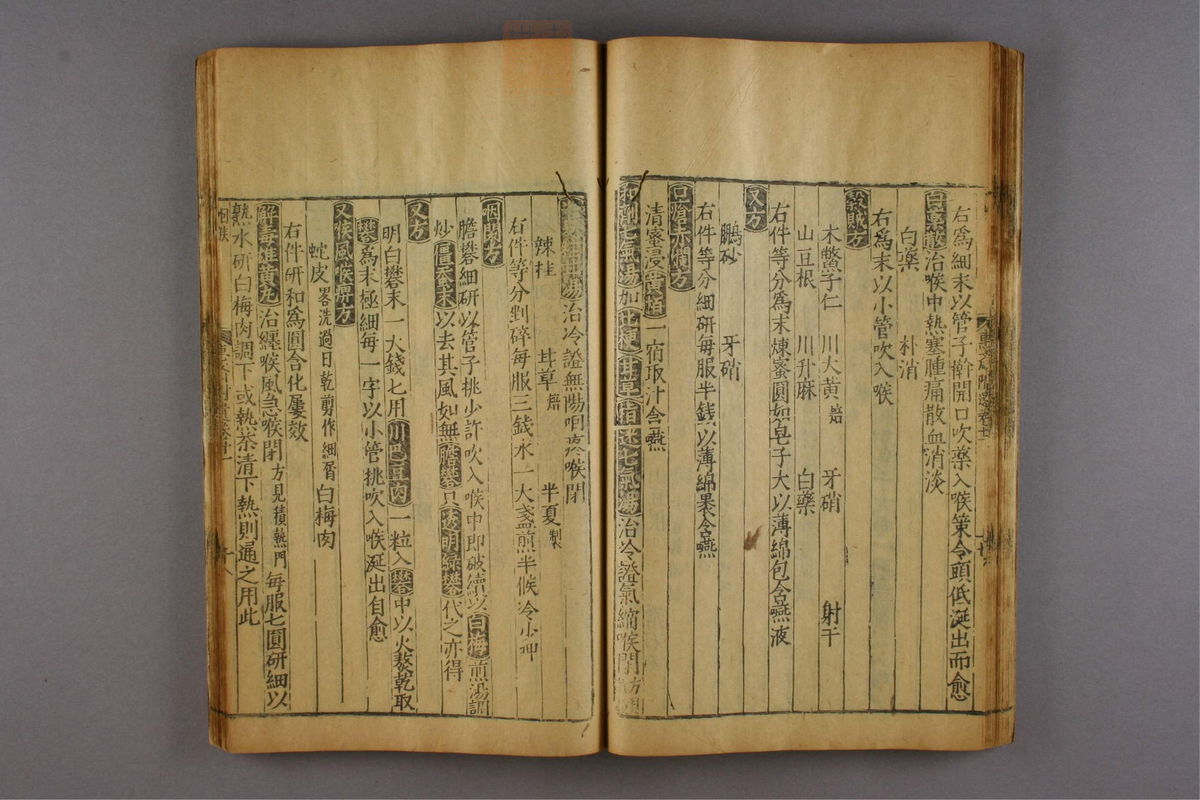 右爲細末以管子斡開口吹藥入喉令頭低涎出而愈
白藥散治喉中熱塞腫痛散血消淡
白藥 朴消
右爲末以小管吹入喉
木鱉子仁 川大黄焙 牙硝 射干
山豆根 川升麻 白藥
右件等分爲末煉蜜圓如皂子大以薄綿包含嚥液
又方
鵬砂 牙硝
右件等分細研每服半錢以薄綿裹含嚥
清蜜浸黄栢一宿取汁含嚥
七氣湯加桂梗甘草指迷七氣湯治冷證氣縮喉閉方
湯治冷證無陽咽疼喉閉
辣桂 甘草焙 半夏製
右件等分剉碎每服三錢水一大盞煎半候冷少呷
咽閉方
膽礬細研以管子挑少許吹入喉中即破續以白梅煎湯調
炒殭蠶末以去其風如無膽礬只透明緑礬代之亦得
又方
明白礬末一大錢匕用川巴豆肉一粒入礬中以火熬乾取
礬爲末極細每一字以小管挑吹入喉涎出自愈
又喉風喉痹方
蛇皮畧洗過日乾剪作細屑 白梅肉
右件研和爲圓含化屢效
解毒雄黄丸治纏喉風急喉閉方見積熱門每服七圓研細以
熱水研白梅肉調下或熱茶清下熱則通之用此